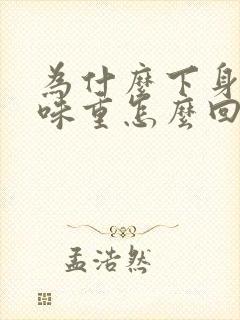 為什麼下身
味重怎麼回
孟浩然